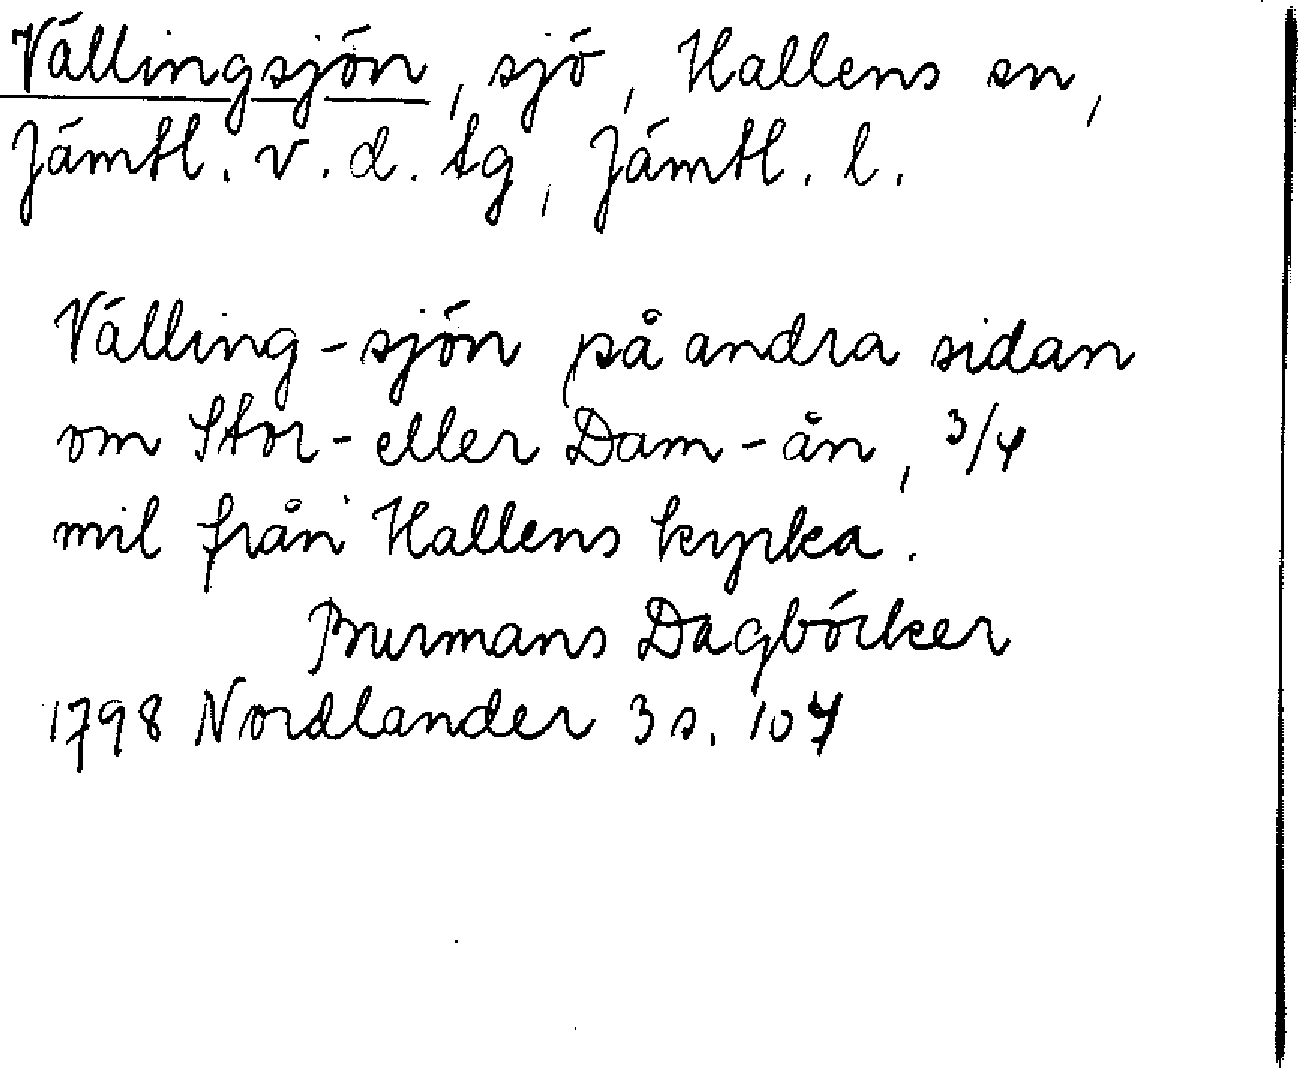 Vällingsjön, sjö, Hallens sn,
Jämtl. v. d. tg, Jämtl. l.
Välling-sjön på andra sidan
om Stor- eller Dam-ån, 3/4
mil från Hallens kyrka.
Burmans Dagböcker
1798 Nordlander 3 s. 107